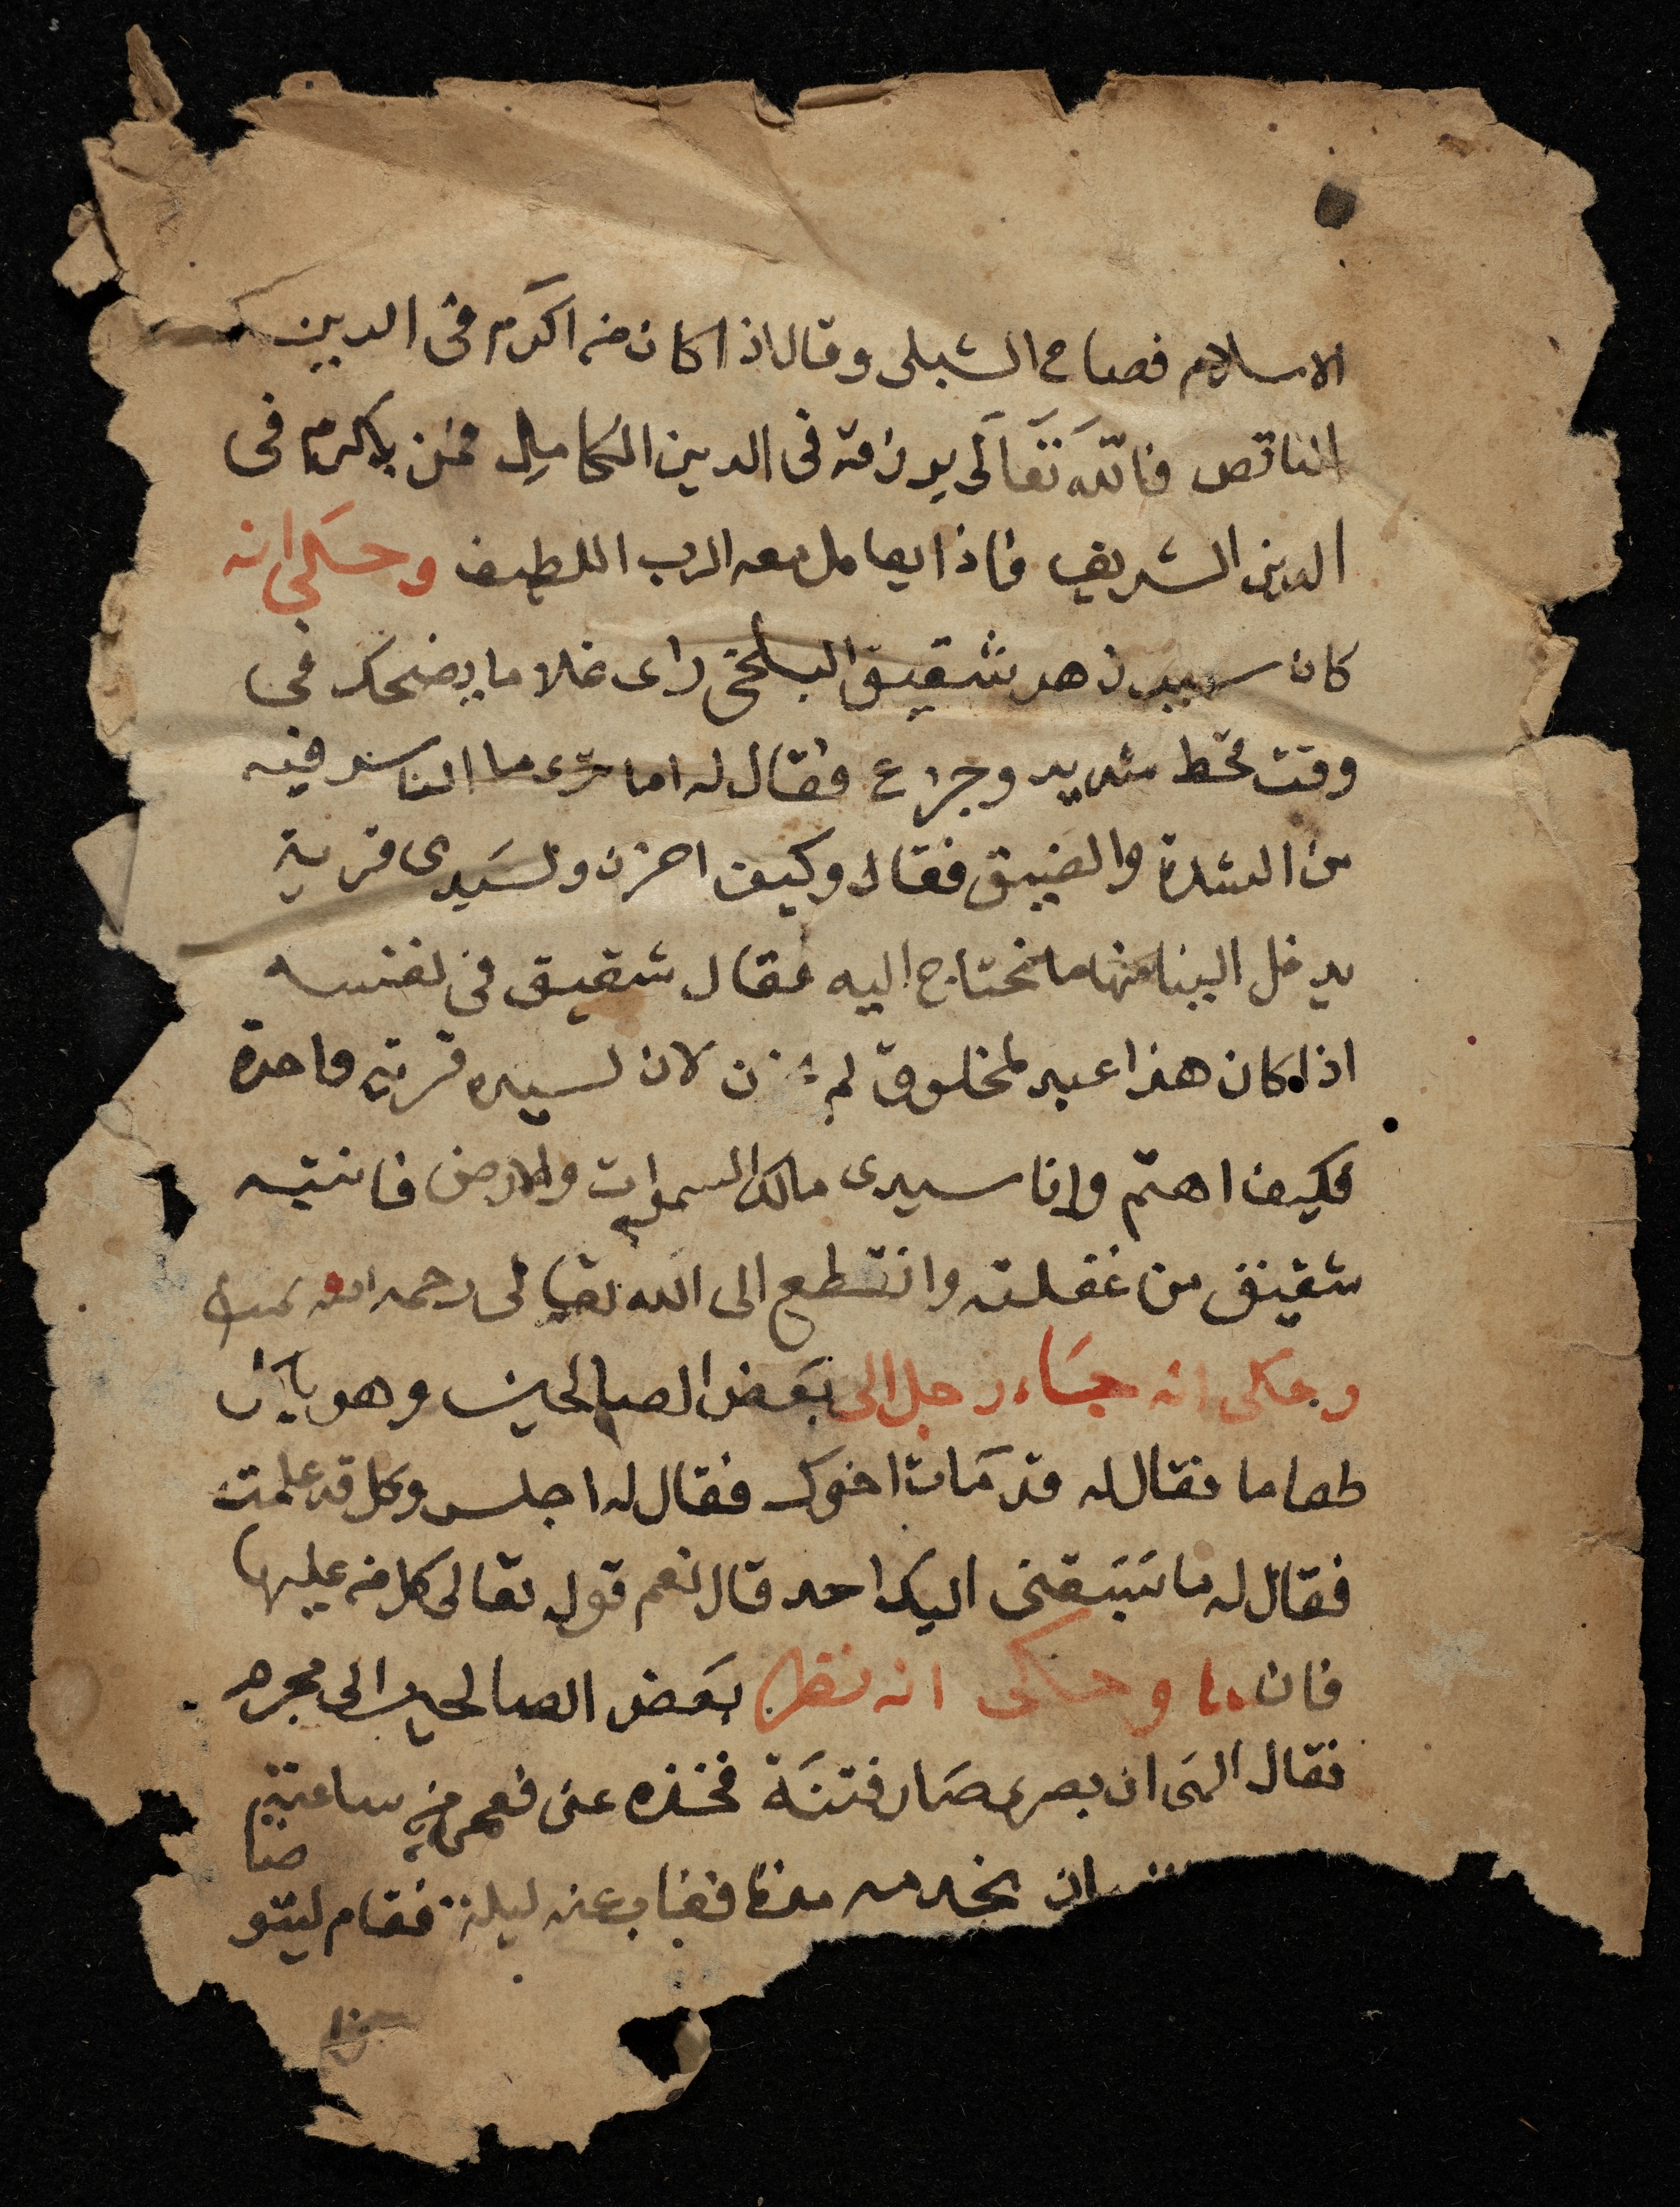 الاسلام فصاح الشبلى وقال اذا كان من اكرم فى الدين
الناقص فالله تَعَالَى يرزقه فى الدين الكامل فمن يكرم فى
الدين الشريف فماذا يعامل معه الرب اللطيف وحكى انه
كان سبب زهد شقيق البلخى راى غلاما يضحك فى
وقت قحط شديد وجزع فقال له اما ترى ما الناس فيه
من الشدة والضيق فقال وكيف احزن ولسَيدى قرية
يدخل الينا منها ما نحتاج اليه فقال شقيق فى نفسه
اذا كان هذا عبد لمخلوق لم ن لان لسيده قرية واحدة
فكيف اهتم وانا سيدى مالك السموات والارض فانتبه
شقيق من غفلته وانقطع الى الله تعالى رحمه الله
وحكى انه جَاء رجل الى بَعض الصالحين وهو ياكل
طعاما فقال له قد مَات اخوك فقال له اجلس وكل قد علمت
فقال له ما سَبَقنى اليك احد قال نعم قوله تعالى كل من عليها
فان وحكى انه نظر بَعض الصالحين الى محرم
فقال الهى ان بصرى صَار فتنَة فخذه عنى فعمى من ساعته
ان يخدمه فغاب عنه ليلة فقام ليتو
ضا